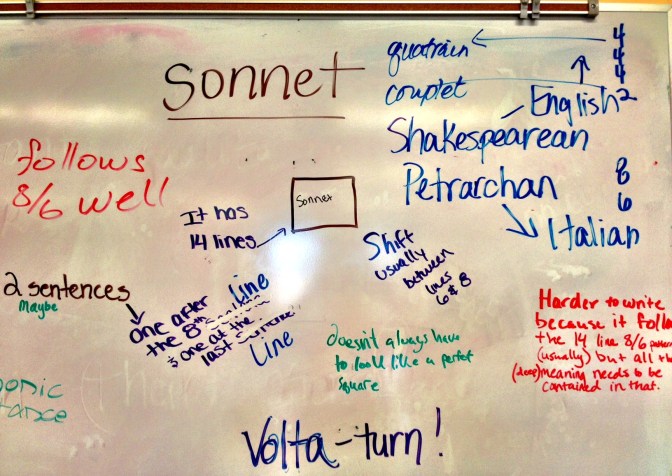 Sonnet
quatrain 4
4
4
couplet
English 2
Shakespearean
Petrarchan 8
6
Italian
follows
8/6 well
It has
14 lines
Sonnet
Shift
usually
between
lines
6 & 8
2 sentences
Maybe
one after
the 8th
Line
& one at the
last
Line
doesn't always have
to look like a perfect
square
Harder to write
because it follo
the 14 line 8/6
(usually) but all
(deep) meaning needs to be
contained in that.
onic
tance
Volta-turn!